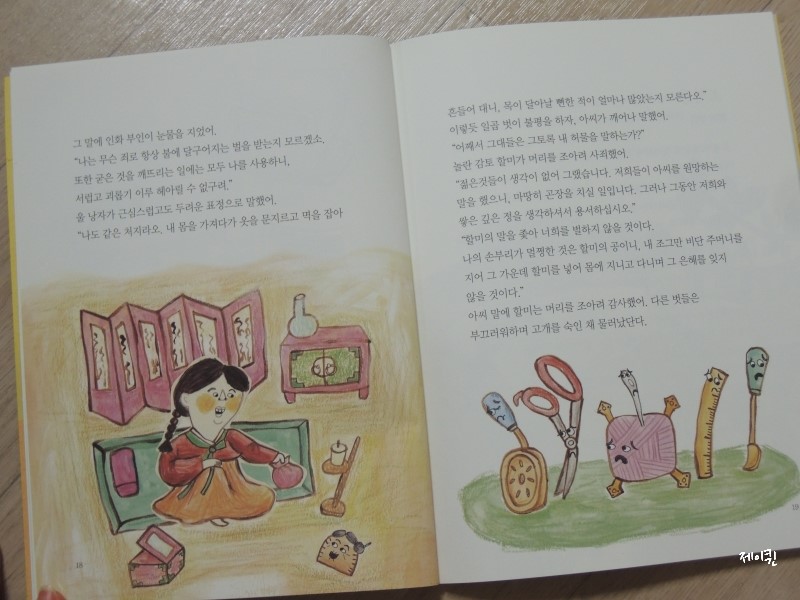 그 말에 인화 부인이 눈물을 지었어.
"나는 무슨 죄로 항상 불에 달구어지는 벌을 받는지 모르겠소.
또한 굳은 것을 깨뜨리는 일에는 모두 나를 사용하니,
서럽고 괴롭기 이루 헤아릴 수 없구려."
울 낭자가 근심스럽고도 두려운 표정으로 말했어.
"나도 같은 처지라오. 내 몸을 가져다가 옷을 문지르고 멱을 잡아
18
흔들어 대니, 목이 달아날 뻔한 적이 얼마나 많았는지 모른다오."
이렇듯 일곱 벗이 불평을 하자, 아씨가 깨어나 말했어.
"어째서 그대들은 그토록 내 허물을 말하는가?"
놀란 감토 할미가 머리를 조아려 사죄했어.
"젊은것들이 생각이 없어 그랬습니다. 저희들이 아씨를 원망하는
말을 했으니, 마땅히 곤장을 치실 일입니다. 그러나 그동안 저희와
쌓은 깊은 정을 생각하셔서 용서하십시오."
"할미의 말을 좇아 너희를 벌하지 않을 것이다.
나의 손부리가 멀쩡한 것은 할미의 공이니, 내 조그만 비단 주머니를
지어 그 가운데 할미를 넣어 몸에 지니고 다니며 그 은혜를 잊지
않을 것이다."
아씨 말에 할미는 머리를 조아려 감사했어. 다른 벗들은
부끄러워하며 고개를 숙인 채 물러났단다.
19
제이퀸